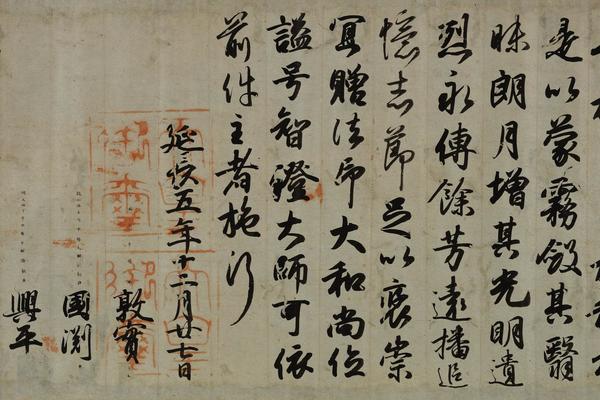 是以蒙霧斂其翳
昧朗月增其光明遺
烈永傳餘芳遠播追
憶志節足以褒崇
冝贈法印大和尚位
謚号智證大師可依
前件主者施行
延長五年十二月廿七日
敦實
國渕
興平